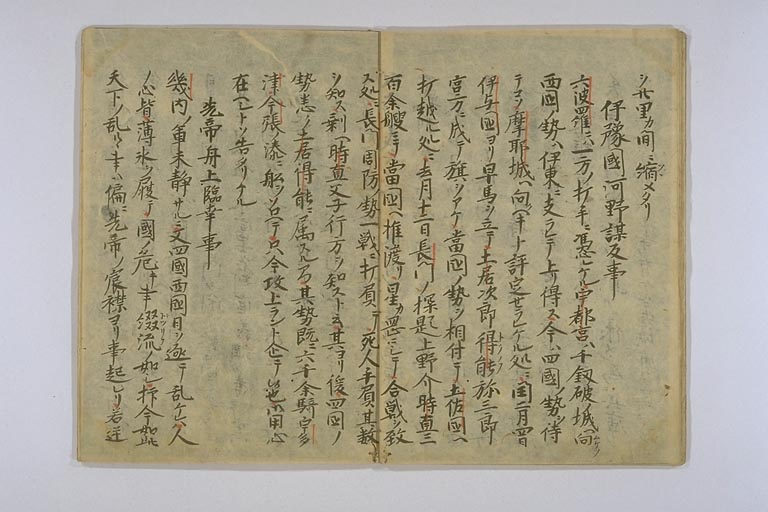 シ九里カ間ニ縮メタリ
伊豫國河野謀反事
六波羅ニハ一方ノ打手ニ憑レケル宇都宮ハ千釼破ノ城ヘ向
西國ノ勢ハ伊東ニ支ラレテ上リ得ス今ハ四國ノ勢ヲ待
テコソ摩耶城ヘハ向ヘケト評定セラレケル処ニ閏二月四日
伊与國ヨリ早馬ヲ立テ土居次郎得能弥三郎
宮方ニ成テ旗ヲアケ當國ノ勢ヲ相付テ土佐國ヘ
打越ル処ニ去月十二日長門ノ探題上野介時直三
百余艘ニテ當國ヘ推渡リ星カ岡ニシテ合戰ヲ致
ス処ニ長門周防ノ勢一戦ニ打負テ死人手負其数
ヲ知ス剰ヘ時直父子行方ヲ知スト云其ヨリ後四國ノ
勢悉ク土居得能ニ属スル間其勢既ニ六千余騎宇多
津今張湊ニ船ヲソロヘテ只今攻上ラント企テ候也御用心
在ヘシトソ告タリケル
先帝舟上臨幸事
幾内ノ軍未静サルニ又四國西國日ヲ逐テ乱ケレハ人
ノ心皆薄氷ヲ履テ國ノ危キ事綴流ノ如シ抑今如此
天下ノ乱ルヽ事ハ偏ニ先帝ノ宸襟ヨリ事起レリ若逆